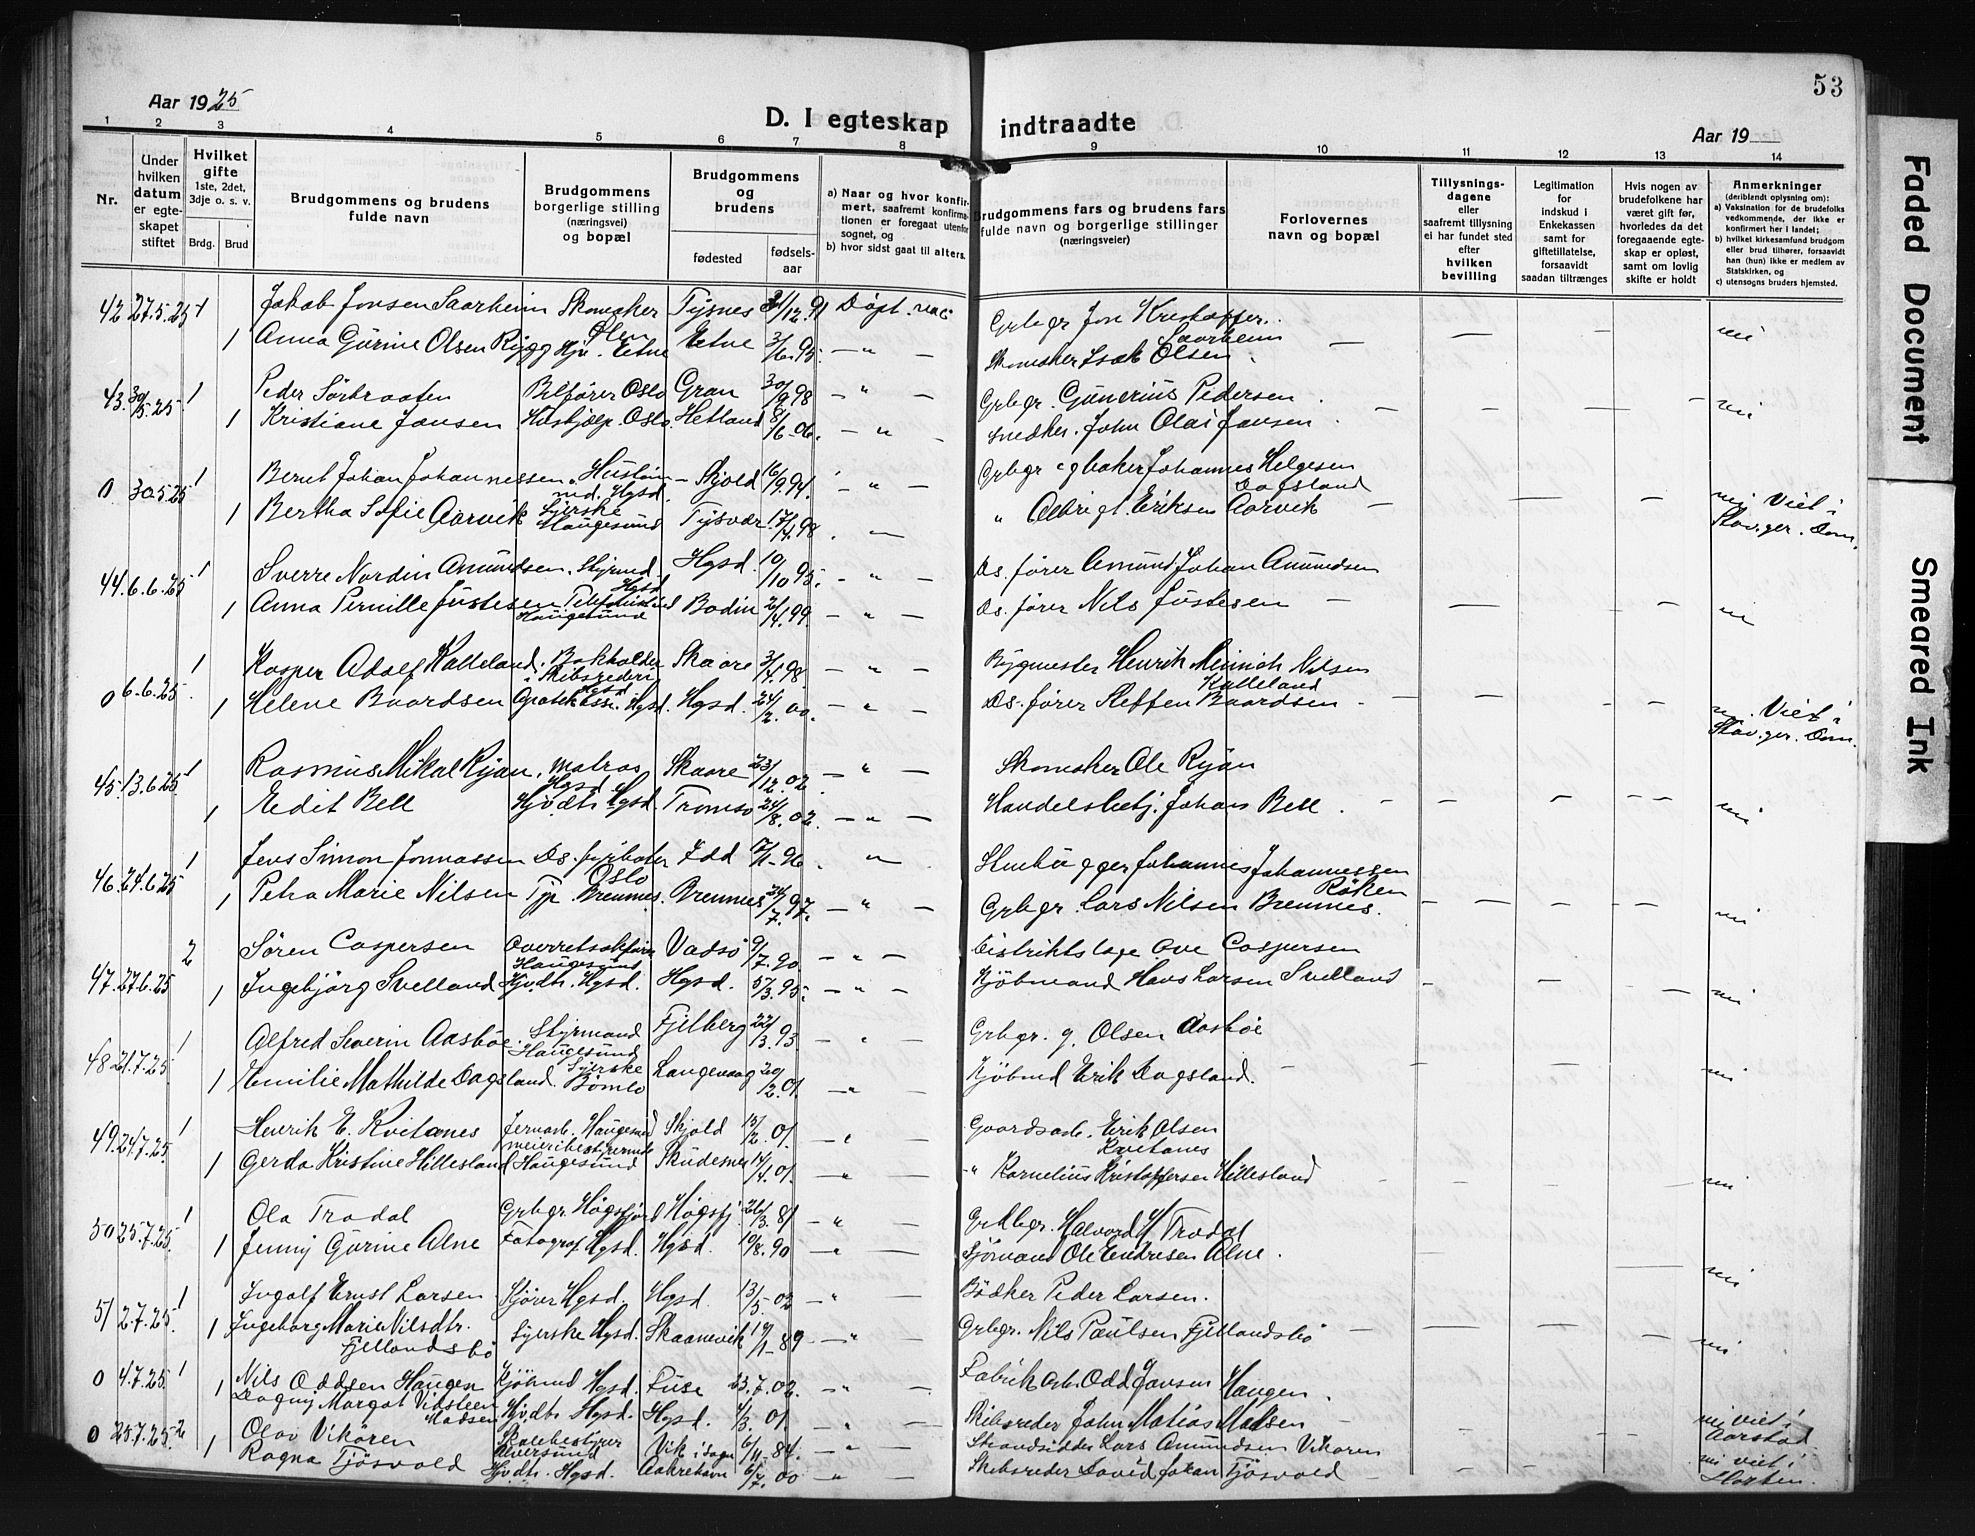 53
Aar 1925
D. I egteskap indtraadte
Aar 19
1 2 3 4 5 6 7 8 9 10 11 12 13 14
Nr.
Under
hvilken
datum
er egte-
skapet
stiftet
Hvilket
gifte
1ste, 2det,
3dje o. s. v.
Brdg. Brud
Brudgommens og brudens
fulde navn
Brudgommens
borgerlige stilling
(næringsvei)
og bopæl
Brudgommens
og
brudens
fødested
fødsels-
aar
a) Naar og hvor konfir-
mert, saafremt konfirma-
tionen er foregaat utenfor
sognet, og
b) hvor sidst gaat til alters.
Brudgommens fars og brudens fars
fulde navn og borgerlige stillinger
(næringsveier)
Forlovernes
navn og bopæl
Tillysnings-
dagene
eller
saafremt tillysning
ei har fundet sted
efter
hvilken
bevilling
Legitimation
for
indskud i
Enkekassen
samt for
giftetillatelse,
forsaavidt
saadan tiltrænges
Hvis nogen av
brudefolkene har
været gift før,
hvorledes da det
foregaaende egte-
skap er opløst,
samt om lovlig
skifte er holdt
Anmerkninger
(deriblandt oplysning om):
a) Vaksination for de brudefolks
vedkommende, der ikke er
konfirmert her i landet;
b) hvilket kirkesamfund brudgom
eller brud tilhører, forsaavidt
han (hun) ikke er medlem av
Statskirken, og
c) utensogns bruders hjemsted.
42 27.5.25 1 Jakob Jonsen Saarheim Skomaker Tysnes /12.91 Døpt Grbgr Jon Kristoffer.
Ølen Saarheim
1 Anna Gurine Olsen Rygg Hjv. Etne Etne 3/6.95 — " — Skomaker Isak Olsen
43. 30/5.25 1 Peder Sörbraaten Bilfører Oslo Gran 30/9 98 — " — Grbgr. Gunerius Pedersen
1 Kristiane Jansen Hushjælp Oslo Hetland 8/6-06. — " — Snedker. John Olai Jansen
0 30.5.25 1 Bernt Johan Johannessen Hustøm- Skjold 16/9.94. — " — Grbgr og baker Johannes Helgesen
md. Hgsd. Dagsland
1 Bertha Sofie Aarvik Syerske Tysvær 17/4.98. — " Albrigt Eriksen Aarvik
Haugesund
Viet i
Stav.ger. Dom.
44. 6.6.25 1 Sverre Nordin Amundsen Styrmd. Hgsd. 10/10 95. — " — Ds. fører Amund Johan Amundsen
Hgsd
1 Anna Pernille Justesen Bodin 2/4.99. — " — Ds. fører Nils Justesen
Haugesund
0 6.6.25 1 Kasper Adolf Kalleland Bokholder Skaare 3/4.98. — " — Bygmester Henrik Meinich Nilsen
i Skibsrederi Kalleland
Hgsd
1 Helene Baardsen Apotek Ass. Hgsd. Hgsd. 24/2.00. — " — Ds. fører Steffen Baardsen
Viet i
Stav.ger. Dom.
45. 13.6.25 1 Rasmus Mikal Ryan, Matros Skaare 23/12.02. — " — Skomaker Ole Ryan
Hgsd
1 Eedit Bell Hjv.dtr. Hgsd. Tromsø 24/8.02. — " — Handelsbetj. Johan Bell
46. 24.6.25 1 Jens Simon Jonnassen Ds. fyrbøter Idd Johannes Johannessen
Oslo Røken
1 Petra Marie Nilsen Tjp Bremnes. Bremnes 24/7.97. — " — Grbgr. Lars Nilsen Bremnes.
47. 27.6.25 2 Søren Caspersen Overretssakfører Vadsø 9/7.90 — " — Distriktslæge Ove Caspersen
Haugesund
1 Ingebjörg Svelland Hjv.dtr. Hgsd. Hgsd. 5/3.95. — " — Kjöbmand Hans Larsen Svelland
48 21.7.25 1 Alfred Severin Aasböe Styrmand Fjelberg 22/3.93 " Grbgr. g. Olsen Aasböe
Haugesund
1 Emilie Mathilde Dagsland. Syerske Langevaag 20/2.01. — " Kjöbmd Erik Dagsland.
Bömlo
49. 24.7.25 1 Henrik E. Kvitanes Jernarb. Haugesund Skjold 13/2.01. — " Gaardsarb. Erik Olsen
Kvitanes
1 Gerda Kristine Hillesland meieribestyrerinde Skudesnes 14/4.01. " — " Kornelius Kristoffersen Hillesland
Haugesund
50 25.7.25. 1 Ola Trodal Grbgr. Högsfjord Högsfj. 26/3.81 — " — Grbgr. Halvord H Trodal
1 Jenny Gurine Alne Fotograf Hgsd. Hgsd. 10/8.90 — " — Sjömand Ole Endresen Alne.
51 2.7.25 1 Ingolf Ernst Larsen Kjører Hgsd. Hgsd. 13/5.02 — " — Bödker Peder Larsen.
1 Ingeborg Marie Nilsdtr. Syerske Hgsd. Skaanevik 19/1-89 — " — Grbgr. Nils Paulsen Fjellandsbö
Fjellandsbö
0 4.7.25. 1 Nils Oddsen Haugen Kjöbmd Hgsd. Fuse 23.7.02. — " — Fabrik arb. Odd Jansen Haugen.
1 Dagny Margot Vidsteen Hjv.dtr. Hgsd. Hgsd. 4/3.01. " — Skibsreder John Matias Madsen
Madsen
viet i
Aarstad
0 25.7.25. 2 Olav Vikören Skolebestyrer Vik i Sogn 6/11.84. — " — Strandsidder Lars Amundsen Vikøren
Alversund
1 Ragna Tjösvold Hjv.dtr. Hgsd. Aakrehavn 6/7.00 — " — Skibsreder David Johan Tjösvold
viet i
Faded Document
Smeared Ink